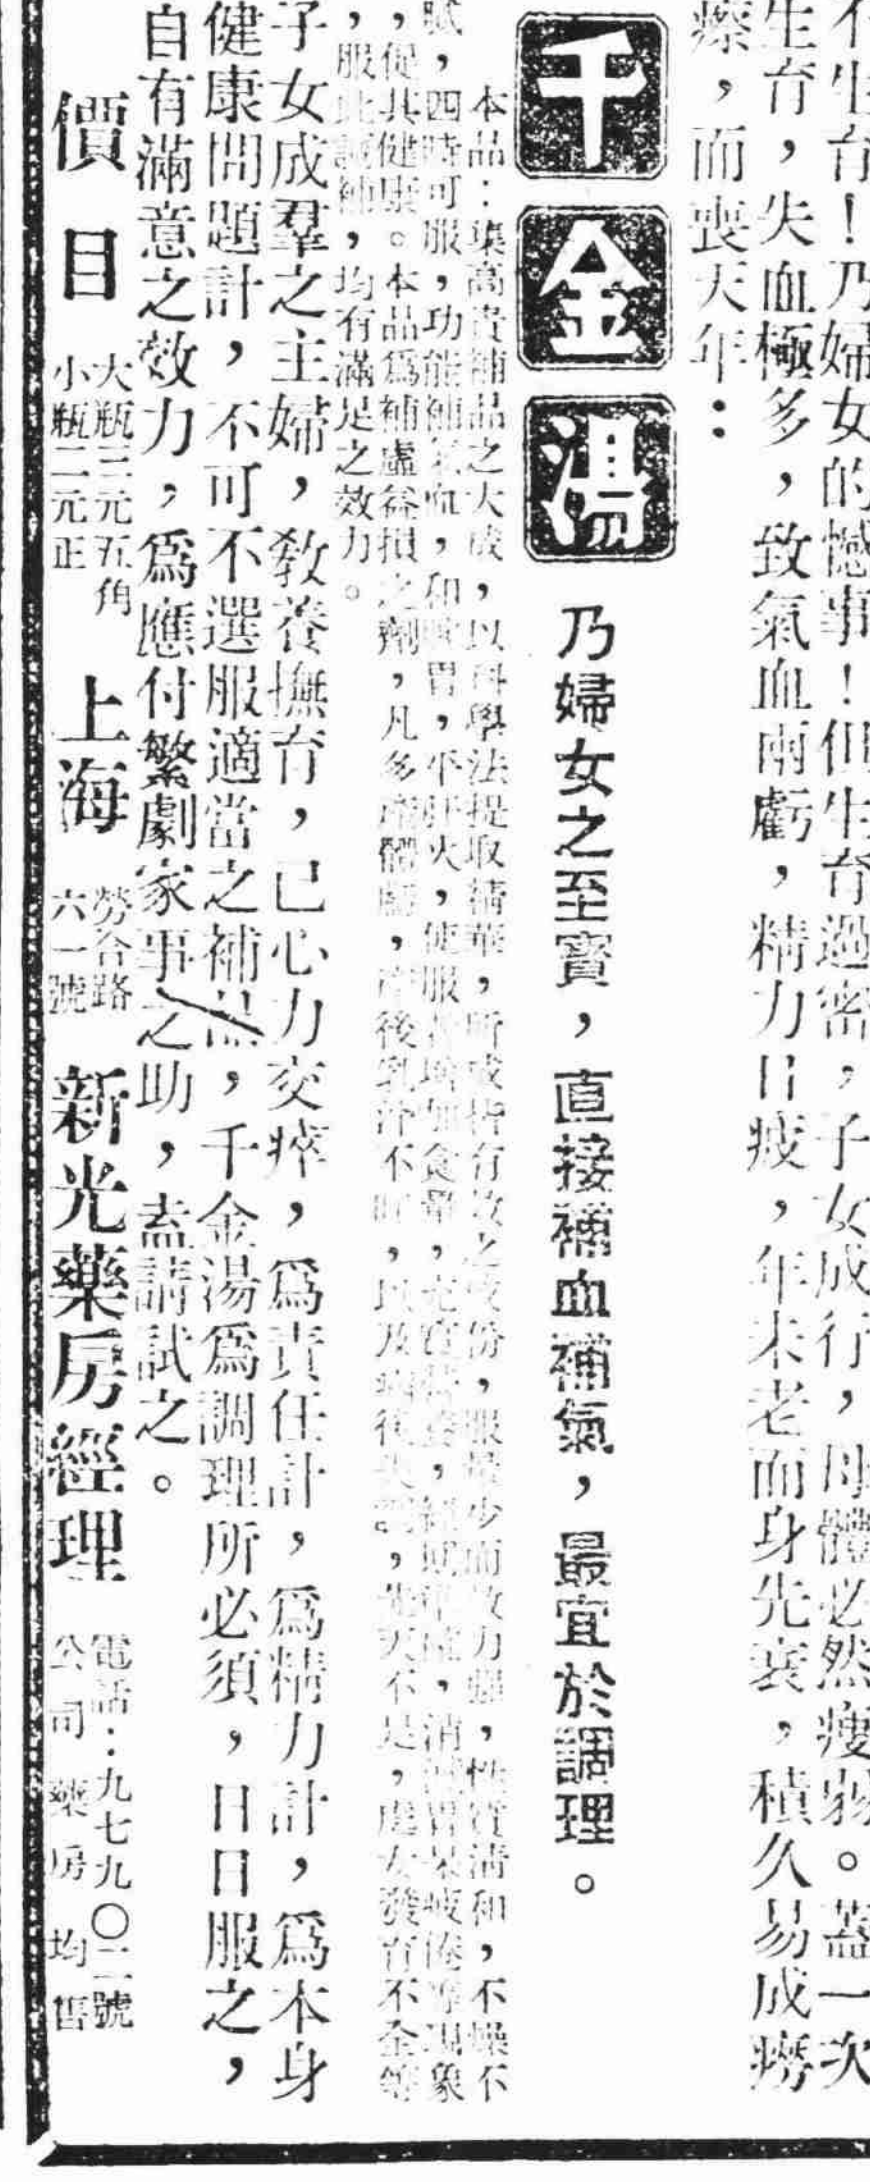 不生育！乃婦女的憾事！但生育過密，子女成行，母體必然瘦弱。蓋一次
生育，失血極多，致氣血兩虧，精力日疲，年未老而身先衰，積久易成癆
瘵，而喪天年：
千金湯
乃婦女之至寶，直接補血補氣，最宜於調理。
本品：集高貴補品之大成，以科學法提取精華，所成皆有效之成份，服量少而效力強，性質清和，不燥不
膩，四時可服，功能補氣血，和脾胃，平肝火，使服者增加食量，經期準確，消滅胃呆疲倦等現象
，促其健康。本品爲補虛益損之劑，凡多產體虧，產後乳汁不旺，以及病後失調，先天不足，處女發育不全等
，服此調補，均有滿足之效力。
子女成羣之主婦，教養撫育，已心力交瘁，爲責任計，爲精力計，爲本身
健康問題計，不可不選服適當之補品，千金湯爲調理所必須，日日服之，
自有滿意之效力，爲應付繁劇家事之助，盍請試之。
價目
大瓶三元五角
小瓶二元正
上海
勞合路
六一號
新光藥房經理
電話：九七九〇二號
公司藥房均售